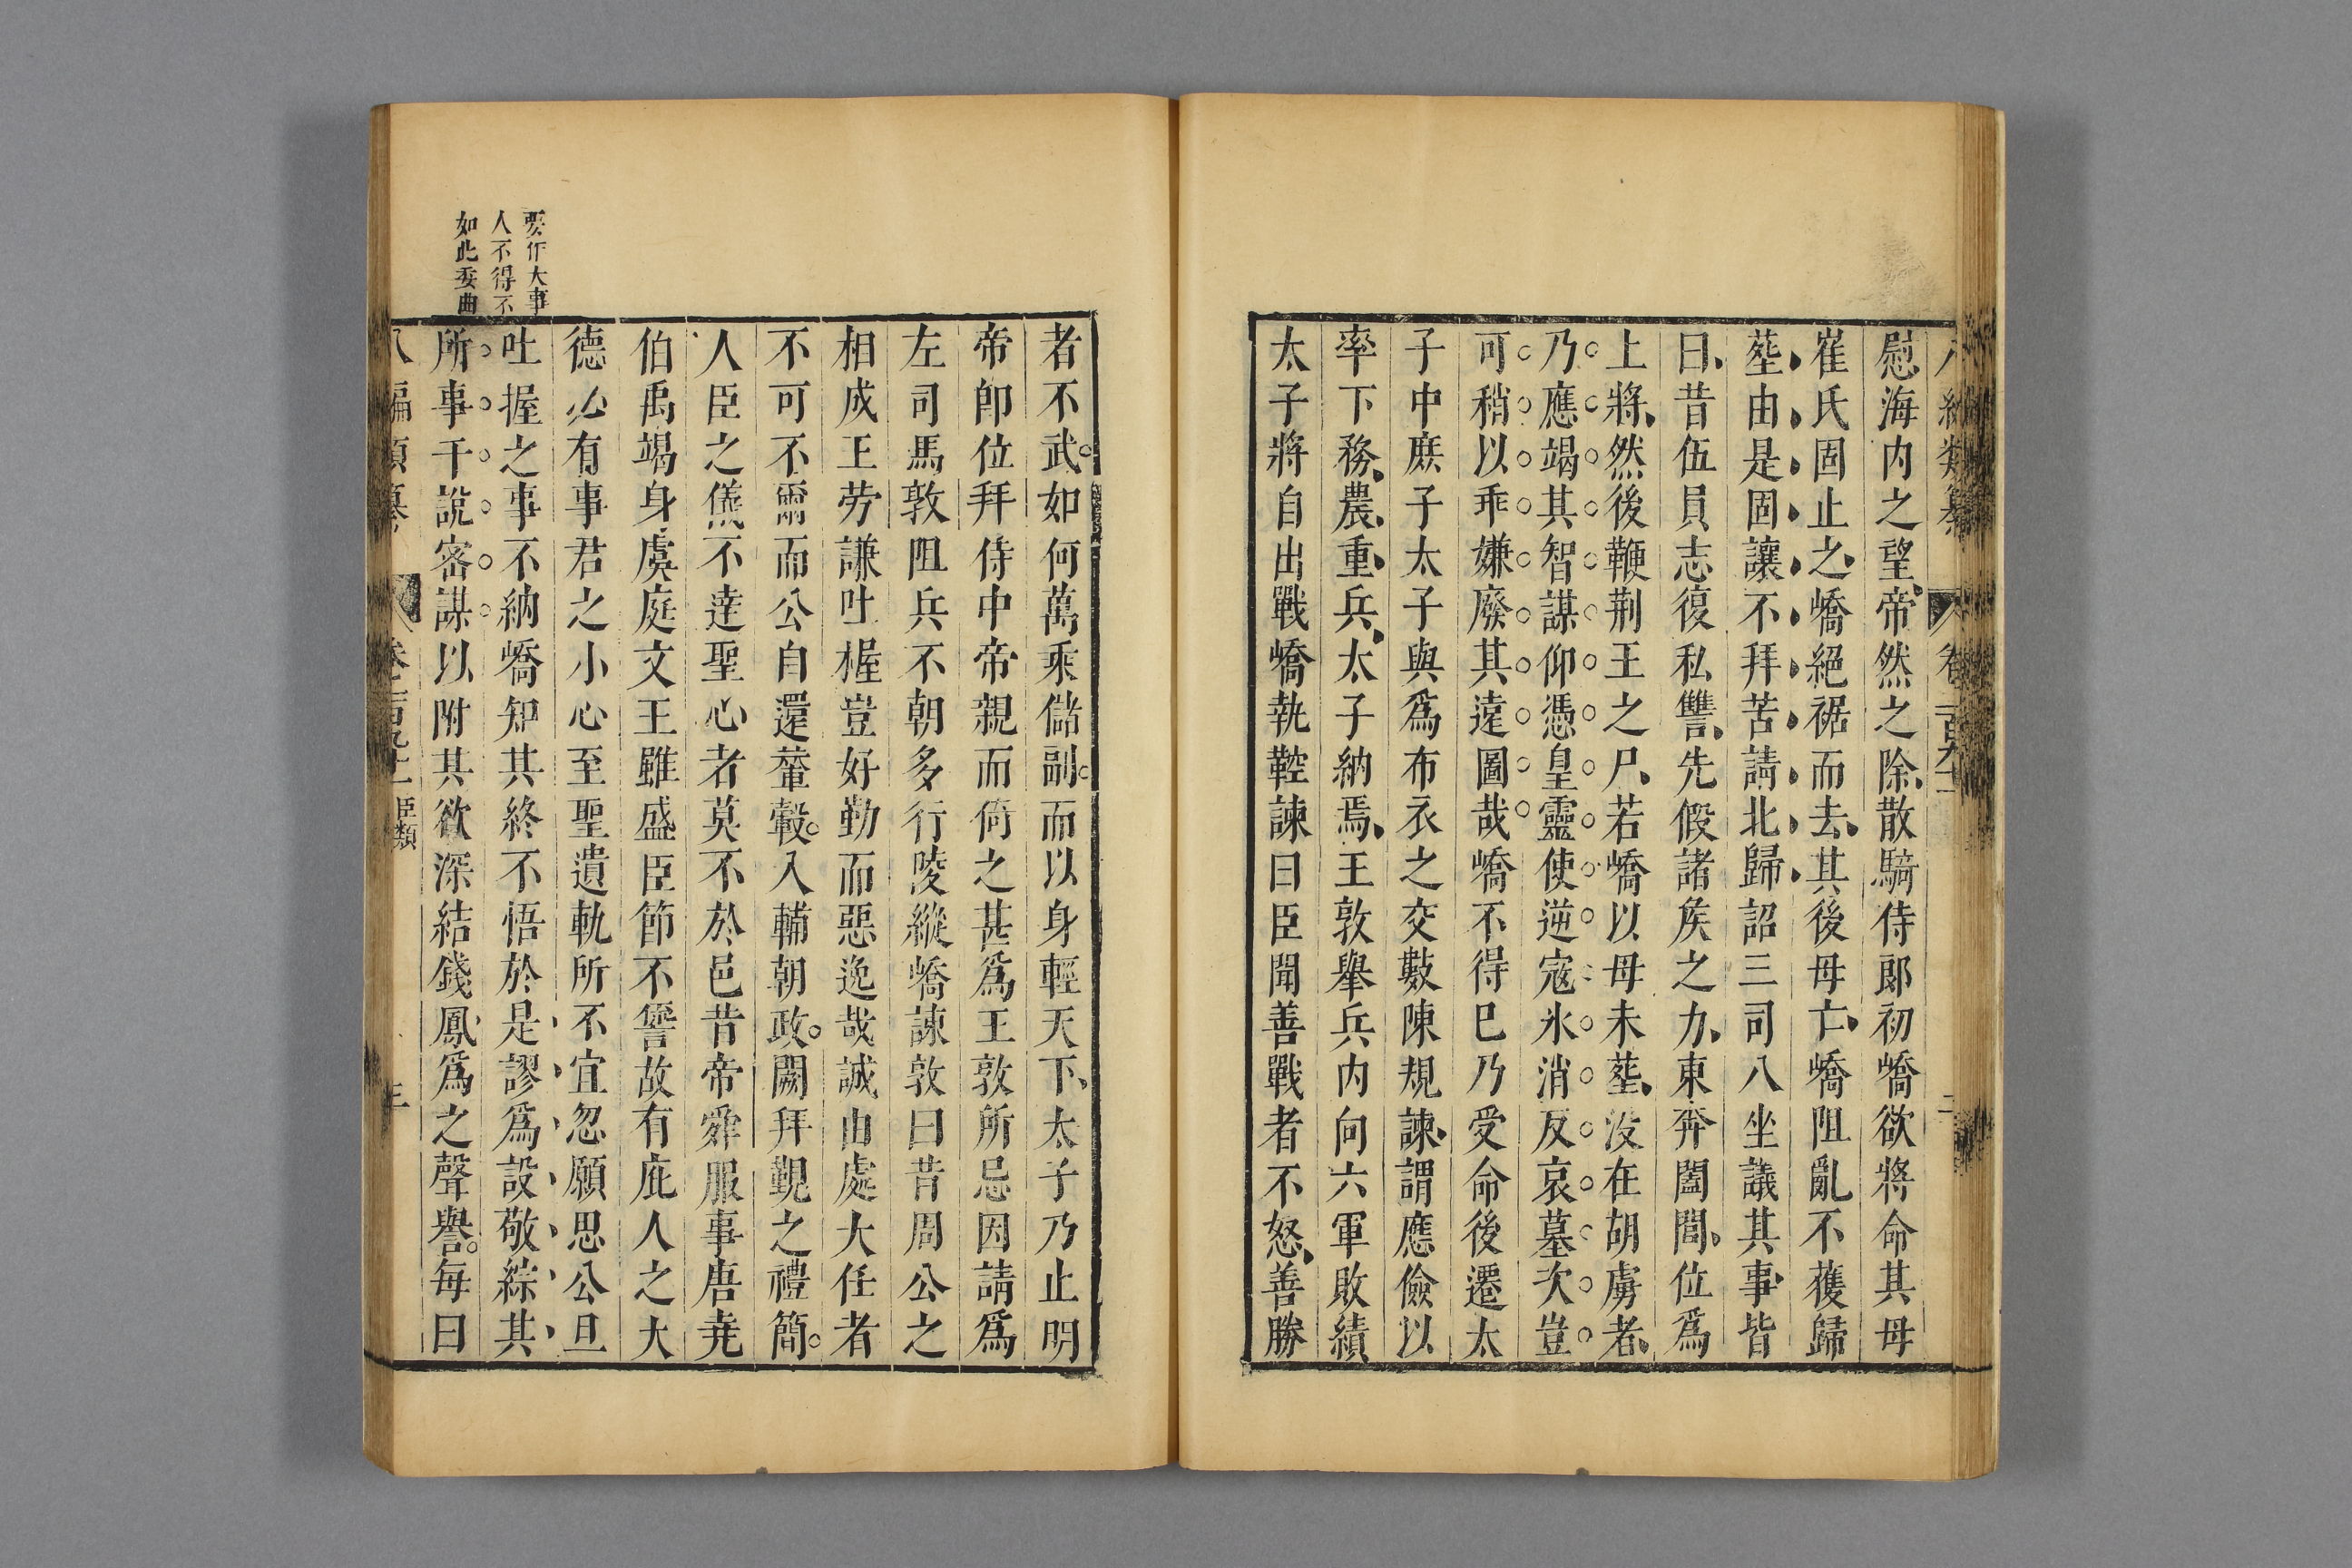 慰海内之望帝然之除散騎侍郎初嶠欲將命其母
崔氏固止之嶠絕裾而去其後母亡嶠阻亂不獲歸
塟由是固讓不拜苦請北歸詔三司八坐議其事皆
曰昔伍員志復私讐先假諸矦之力東奔闔閭位爲
上將然後鞭荆王之尸若嶠以母未塟没在胡虜者
乃應竭其智謀仰憑皇靈使逆寇氷消反哀墓次豈
可稍以乖嫌廢其遠圖哉嶠不得已乃受命後遷太
子中庶子太子與爲布衣之交數陳規諫謂應儉以
率下務農重兵太子納焉王敦舉兵内向六軍敗績
太子將自出戰嶠執鞚諫曰臣聞善戰者不怒善勝
者不武如何萬乘儲副而以身輕天下太子乃止明
帝卽位拜侍中帝親而倚之甚爲王敦所忌因請爲
左司馬敦阻兵不朝多行陵縱嶠諫敦曰昔周公之
相成王劳謙吐握豈好勤而惡逸哉誠由處大任者
不可不爾而公自還輦轂入輔朝政闕拜覲之禮簡
人臣之儀不達聖心者莫不於邑昔帝舜服事唐尭
伯禹竭身虞庭文王雖盛臣節不諐故有庇人之大
德必有事君之小心至聖遺軌所不宜忽願思公旦
吐握之事不納嶠知其終不悟於是謬爲設敬綜其
所事干說密謀以附其欲深結錢鳳爲之聲譽每曰
要作大事
人不得不
如此委曲
八編類纂 卷二百九十一 臣類 三